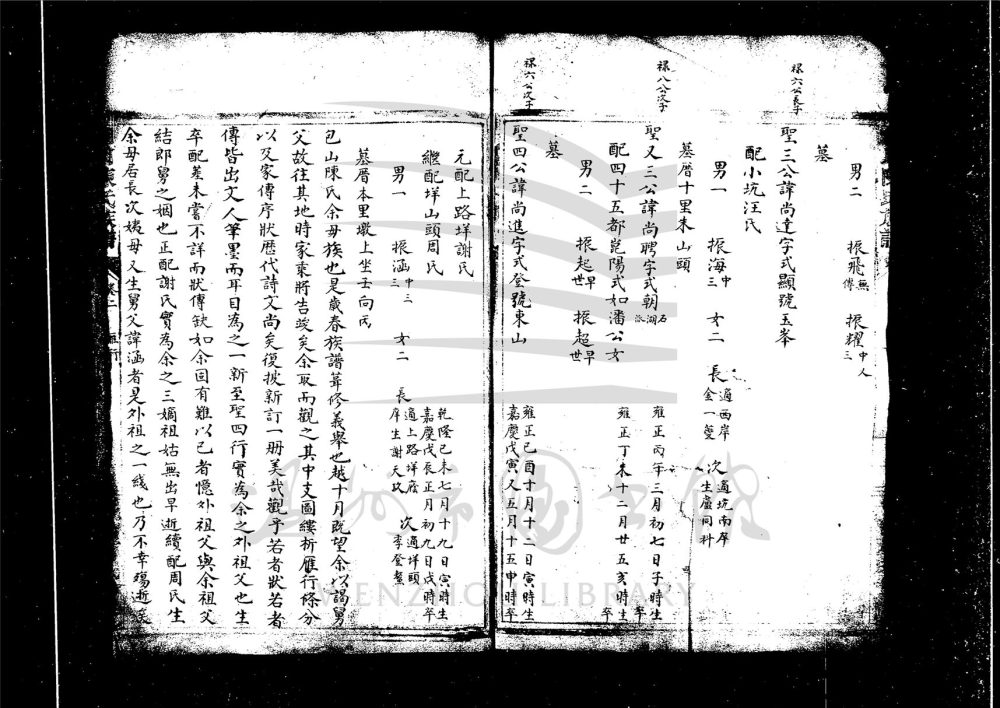 男二 振飛無傳 振耀中三人
墓
祿六公長子
聖三公諱尚達字式顯號玉峯
配小坑汪氏
男一 振海中三 女二 長適西岸金一夔 次適坑南庠生盧同科
墓厝十里耒山頭
祿八公次子
聖又三公諱尚聘字式朝 石湖派 雍正丙午三月初七日子時生 卒
配四十五都崑陽式如潘公女 雍正丁未十二月廿五亥時生 卒
男二 振起早世 振超早世
墓
祿六公次子
聖四公諱尚進字式登號東山 雍正己酉十月十二日寅時生 嘉慶戊寅又五月十五申時卒
元配上路垟謝氏
繼配垟山頭周氏 乾隆己未七月十九日寅時生 嘉慶戊辰正月初九日戌時卒
男一 振涵中三三 女二 長適上路垟庠生謝天玖 次適垟頭李登鰲
墓厝本里墩上坐壬向丙
包山陳氏余母族也是歲春族譜葺修義舉也越十月既望余以謁舅
父故往其地時家乘將告竣矣余取而觀之其中支圖縷析雁行條分
以及家傳序狀歷代詩文尚矣復披新訂一册美哉觀乎若者狀若者
傳皆出文人筆墨而耳目為之一新至聖四行實為余之外祖父也生
卒配葬未嘗不詳而狀傳缺如余固有難以已者憶外祖父與余祖父
結郎舅之姻也正配謝氏實為余之三嫡祖姑無出早逝續配周氏生
余母居長次姨母又生舅父諱涵者是外祖之一綫也乃不幸殤逝矣
陳氏族譜 卷二